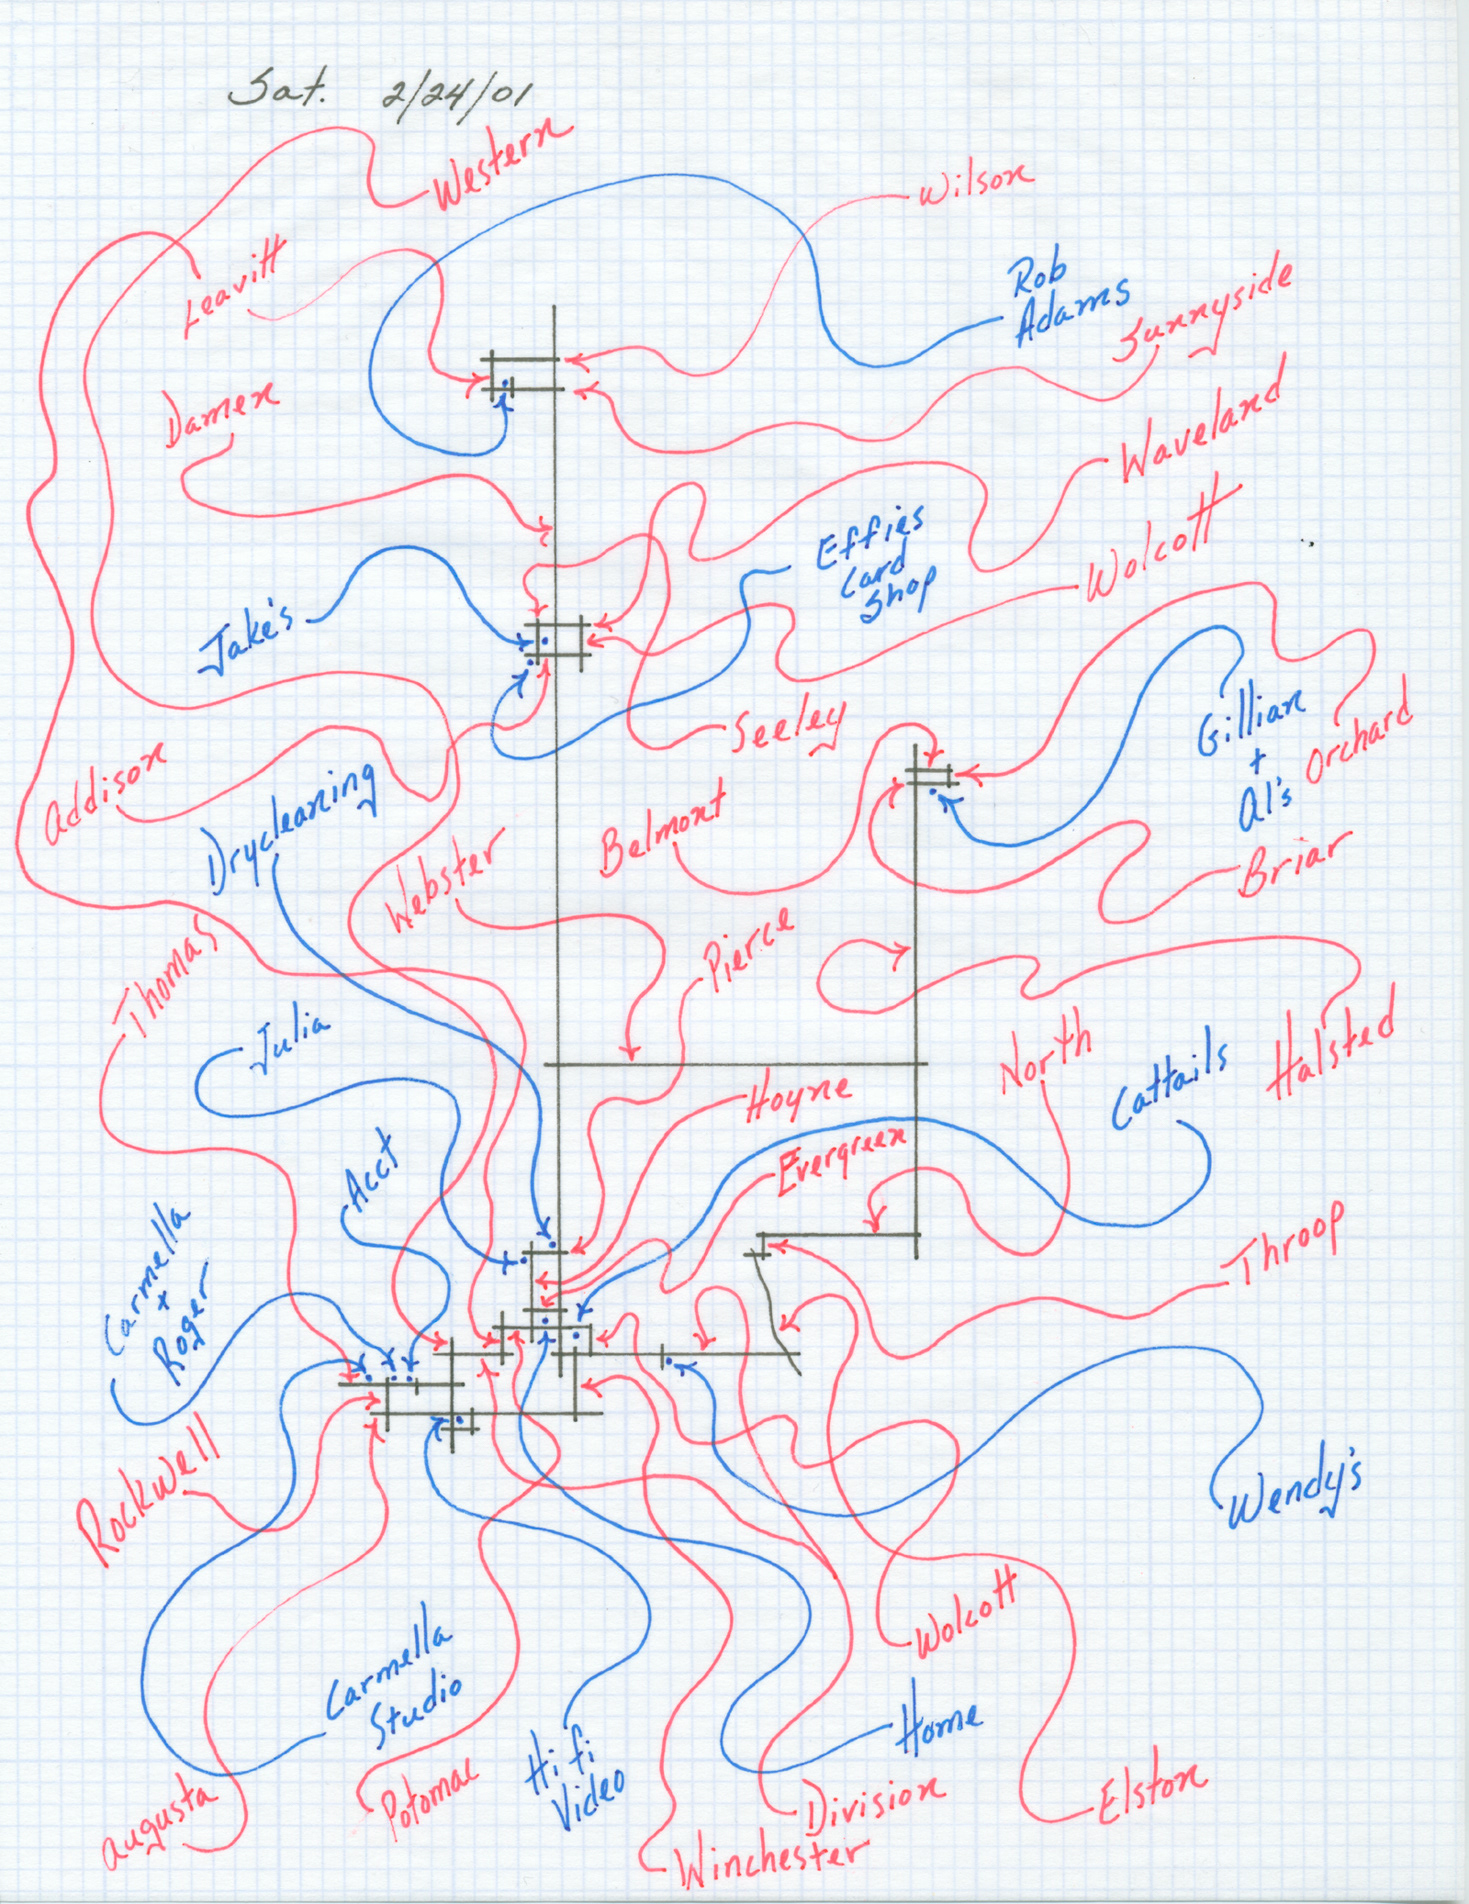 Sat. 2/24/01
Western
Wilson
Leavitt
Rob
Adams
Sunnyside
Damen
Waveland
Effies
Card
Shop
Wolcott
Jake's
Seeley
Gillian
+
Al's
Orchard
Addison
Drycleaning
Belmont
Briar
Webster
Pierce
Thomas
Julia
North
Halsted
Cattails
Hoyne
Evergreen
Acct
Carmella
+
Roger
Throop
Rockwell
Wendy's
Wolcott
Carmella
Studio
Home
Hi fi
Video
Augusta
Potomac
Division
Elston
Winchester